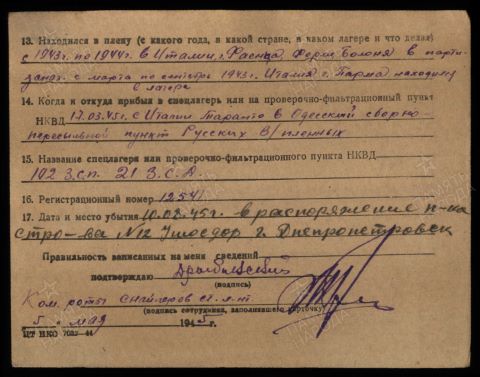 13. Находился в плену (с какого года, в какой стране, в каком лагере и что делал)
с 1943г. по 1944г. в Италии, г. Фаенца Форли Болоня в парти-
занах. с марта по сентябрь 1943г. Италия г. Парма находился
в лагере
14. Когда и откуда прибыл в спецлагерь или на проверочно-фильтрационный пункт
НКВД 17.03.45г. с Италии Таранто в Одесский сборно-
пересыльной пункт Русских В/пленных
15. Название спецлагеря или проверочно-фильтрационного пункта НКВД
102 З.С.П. 21 З.С.Д.
16. Регистрационный номер 12541
17. Дата и место убытия 10.08.45г. в распоряжение н-ка
стро-ва №12 Ушосдор г. Днепропетровск
Правильность записанных на меня сведений
подтверждаю
(подпись)
Ком. роты снайперов ст. л-т.
(подпись сотрудника, заполнявшего карточку)
5. май 1945г.
ЦТ НКО 7032-44